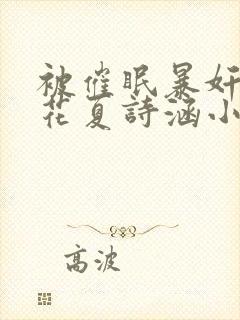 被催眠暴奸
花夏詩涵小
高波